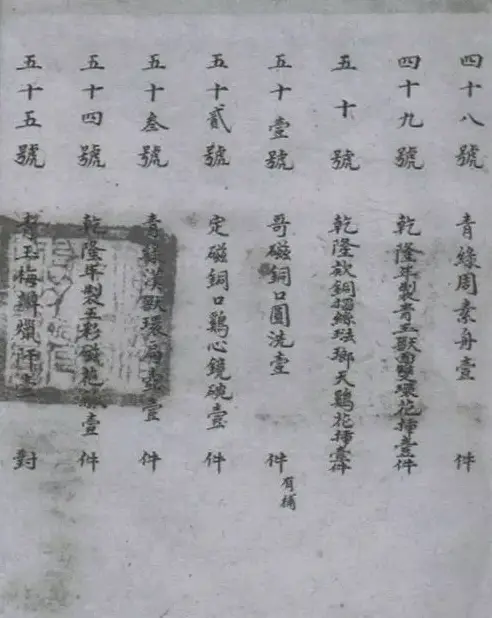 四十八號 青綠周素舟壹件
四十九號 乾隆年製青玉獸面雙環花揷壹件
五十號 乾隆款銅招絲琺瑯天鷄花揷壹件
五十壹號 哥磁銅口圓洗壹件 有補
五十貳號 定磁銅口鷄心鏡碗壹件
五十叁號 青綠漢獸環扁壺壹件
五十四號 乾隆年製五彩磁花瓶壹件
五十五號 青玉梅瓣爉阡壹對